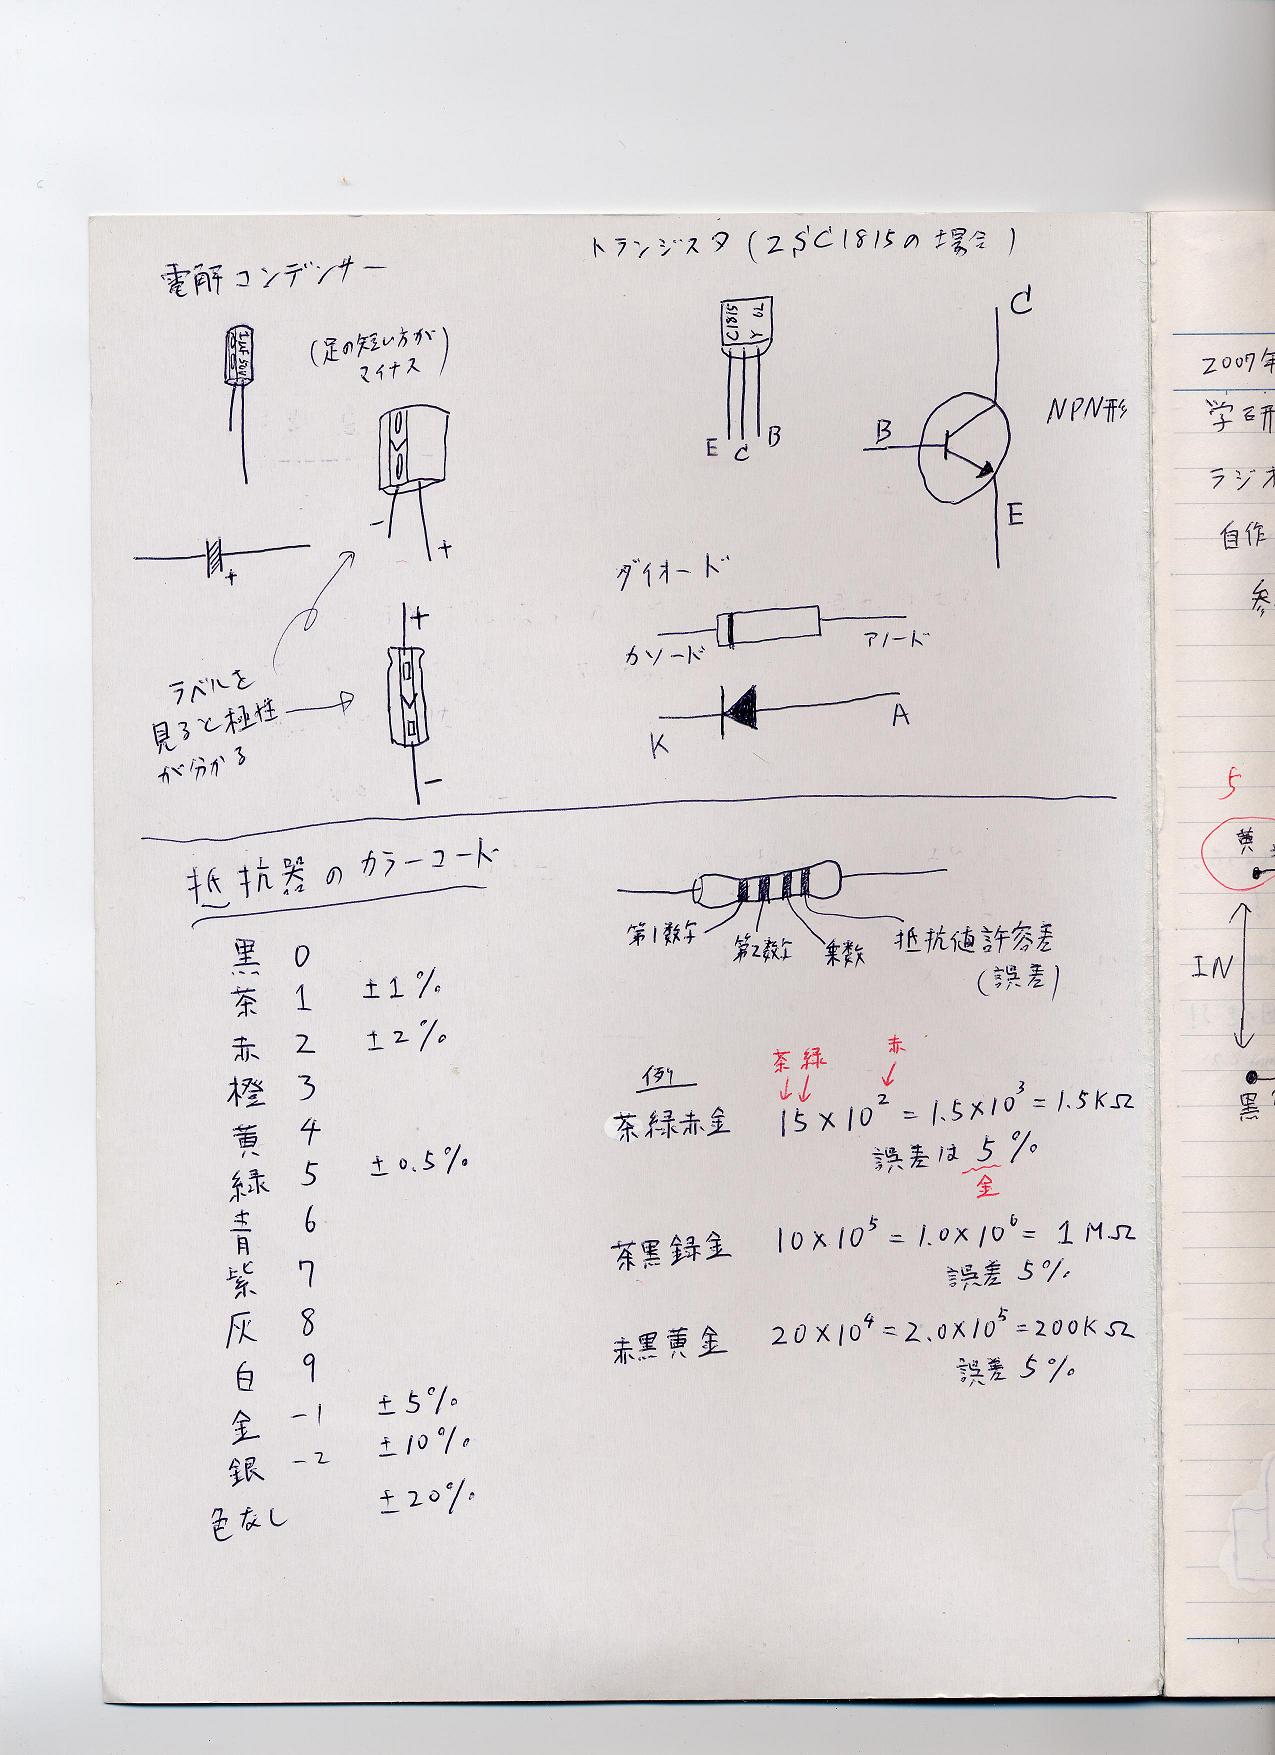 電解コンデンサー
1μF 50V
(足の短い方が
マイナス)
-
+
+
+
-
ラベルを
見ると極性
が分かる
トランジスタ(2SC1815の場合)
C1815
Y
E C B
C
B
E
NPN形
ダイオード
カソード
アノード
K
A
抵抗器のカラーコード
黒 0
茶 1 ±1%
赤 2 ±2%
橙 3
黄 4
緑 5 ±0.5%
青 6
紫 7
灰 8
白 9
金 -1 ±5%
銀 -2 ±10%
色なし ±20%
第1数字
第2数字
乗数
抵抗値許容差
(誤差)
例
茶 緑 赤
茶緑赤金 15×10² = 1.5×10³ = 1.5KΩ
誤差は 5%
金
茶黒録金 10×10⁵ = 1.0×10⁶ = 1MΩ
誤差 5%
赤黒黄金 20×10⁴ = 2.0×10⁵ = 200KΩ
誤差 5%
2007年
学研
ラジオ
自作
参
5
黄
IN
黒